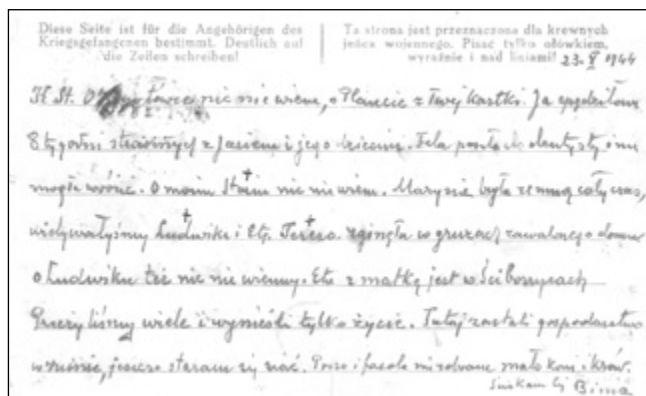 Diese Seite ist für die Angehörigen des
Kriegsgefangenen bestimmt. Deutlich auf
die Zeilen schreiben!
Ta strona jest przeznaczona dla krewnych
jeńca wojennego. Pisać tylko ołówkiem,
wyraźnie i nad liniami! 23.X 1944
nic nie wiem, o z Twej kartki. Ja spędziłam
8 tygodni strasznych z Jasiem i jego dziećmi. Fela poszła do dentysty i nie
mogła wrócić. O moim Stasiu nic nie wiem. Marysia była ze mną cały czas,
widywałyśmy Ludwika i Elę. Teresa zginęła w gruzach zawalonego domu
o Ludwiku też nic nie wiemy. Ela z matką jest w Ściborzycach
Przeżyliśmy wiele i wynieśli tylko życie. Tutaj zastali gospodarstwo
w ruinie, jeszcze staram się siać. Proso i fasola mało koni i krów.
Bima